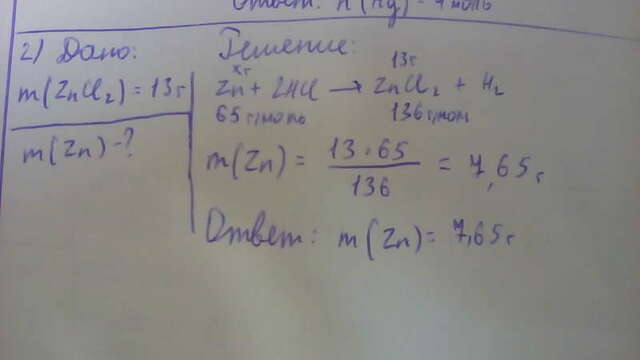 Ответ: n(Hg) = 4 моль
2) Дано:
m(ZnCl₂) = 13 г
m(Zn) - ?
Решение:
x г 13 г
Zn + 2HCl → ZnCl₂ + H₂
65 г/моль 136 г/моль
m(Zn) = 13 · 65 / 136 = 7,65 г
Ответ: m(Zn) = 7,65 г